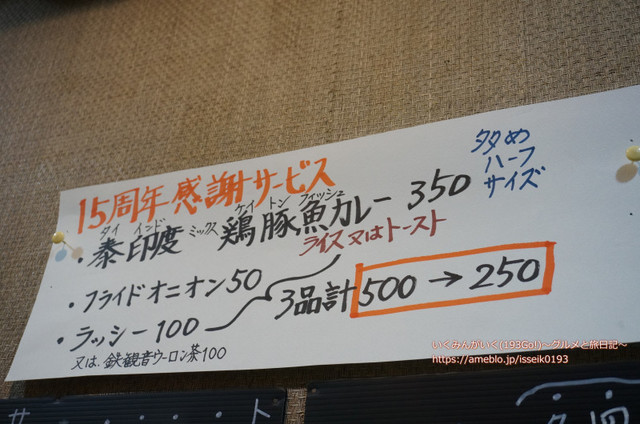 15周年感謝サービス
タイ インド ミックス ケイ トン フィッシュ
・泰印度ミックス鶏豚魚カレー 350
多め
ハーフ
サイズ
ライス又はトースト
・フライドオニオン50
・ラッシー100
3品計500→250
又は、鉄観音ウーロン茶100
いくみんがいく(193Go!)～グルメと旅日記～
https://ameblo.jp/isseik0193